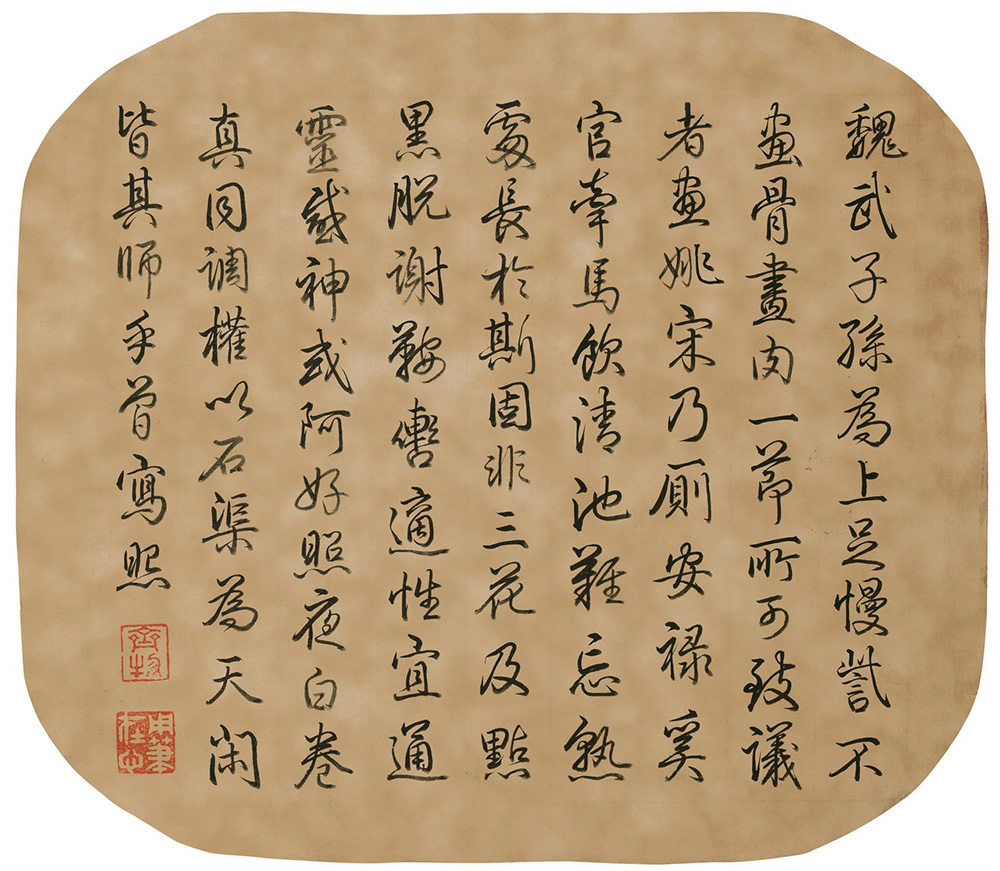 魏武子孫為上足慢訾不
畫骨畫肉一節所可致議
者畫姚宋乃厠安祿奚
官牽馬飲清池難忘熟
處長於斯固非三花及點
黑脫謝鞍轡適性宜通
靈感神或阿好照夜白卷
真同調權以石渠為天閑
皆其師乎曾寫照
齊物
用筆在心